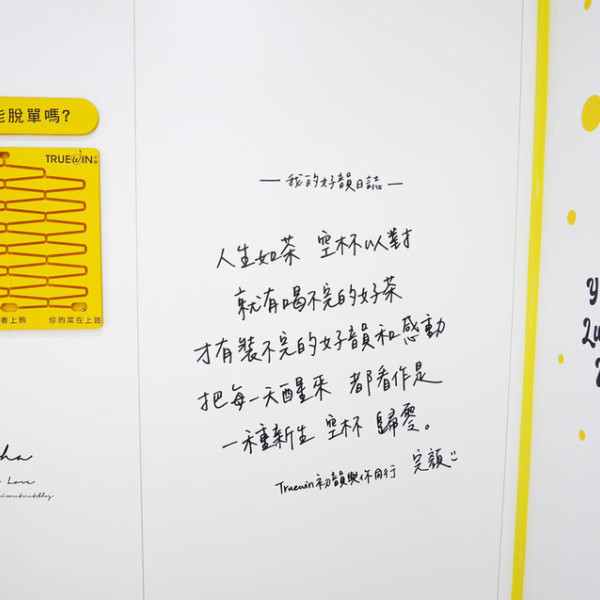 能脫單嗎?
TRUEWIN
客上鉤 你的菜在上路
— 我的好韻日誌 —
人生如茶 空杯以對
就有喝不完的好茶
才有裝不完的好韻和感動
把每一天醒來 都看作是
一種新生 空杯 歸零。
Truewin初韻與你同行 完顏